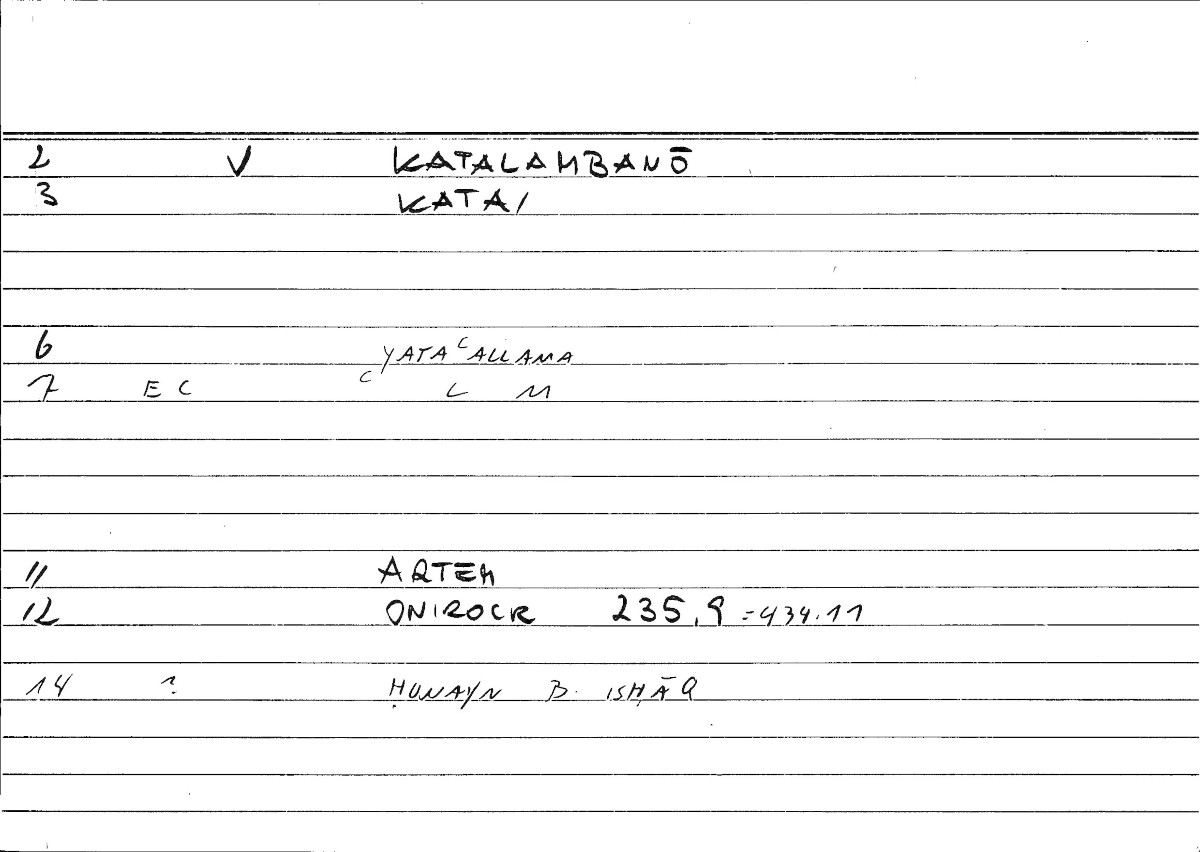 2 V KATALAMBANŌ
3 KATA/
6 YATAᶜALLAMA
7 EC ᶜ L M
11 ARTEM
12 ONIROCR 235,9 =434.11
14 ? ḤUNAYN B. ISḤĀQ